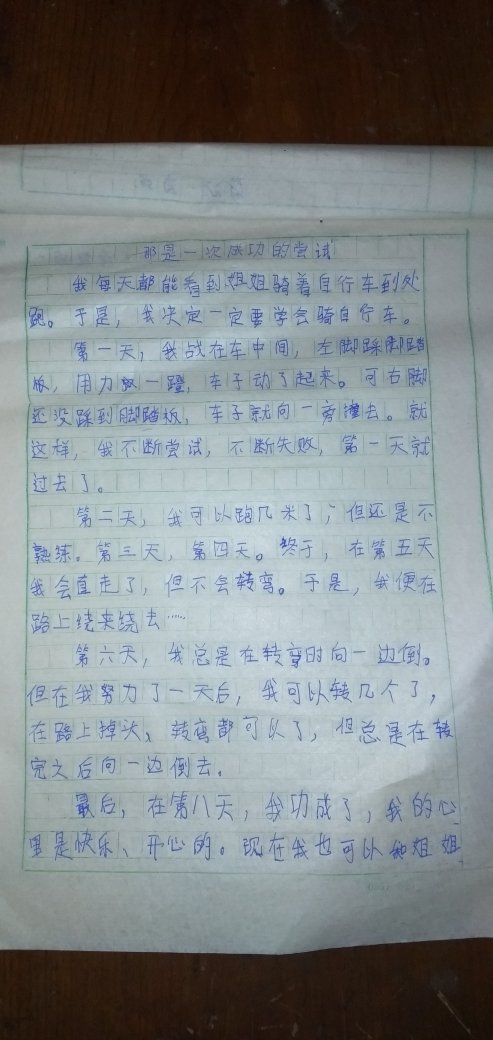 那是一次成功的尝试
我每天都能看到姐姐骑着自行车到处
跑。于是，我决定一定要学会骑自行车。
第一天，我战在车中间，左脚踩脚踏
板，用力一蹬，车子动了起来。可右脚
还没踩到脚踏板，车子就向一旁撞去。就
这样，我不断尝试，不断失败，第一天就
过去了。
第二天，我可以跑几米了，但还是不
熟练。第三天，第四天。终于，在第五天
我会直走了，但不会转弯。于是，我便在
路上绕来绕去……
第六天，我总是在转弯时向一边倒。
但在我努力了一天后，我可以转几个了，
在路上掉头、转弯都可以了，但总是在转
完之后向一边倒去。
最后，在第八天，我功成了，我的心
里是快乐、开心的。现在我也可以和姐姐